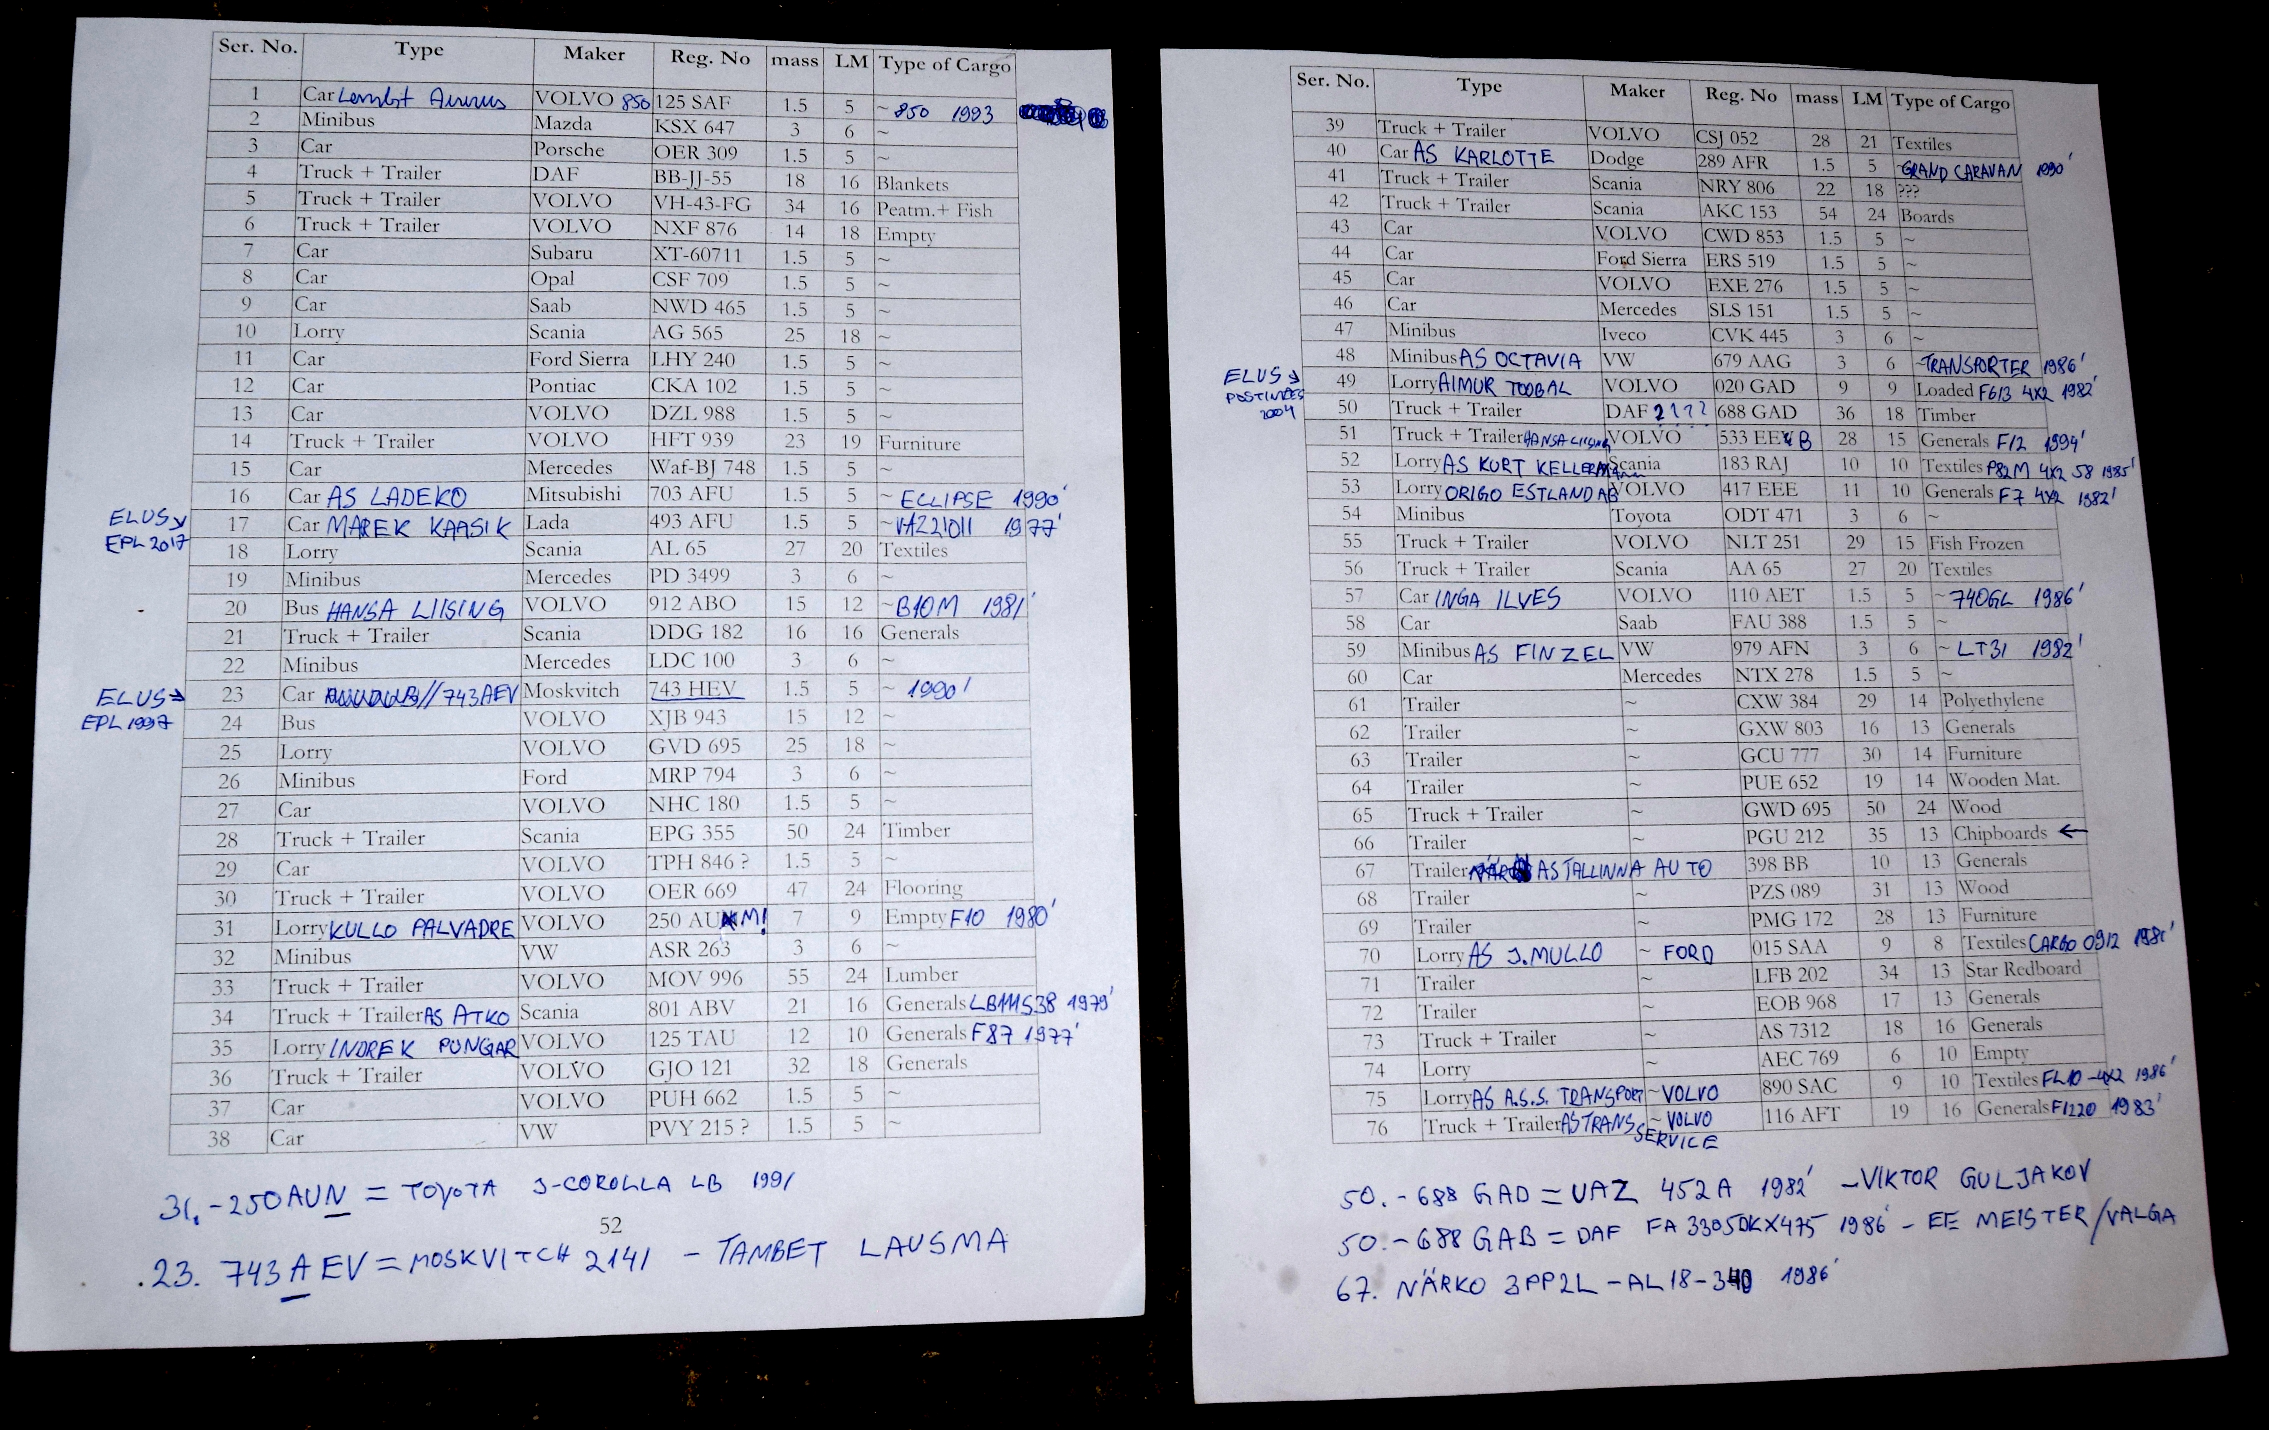 Ser. No. Type Maker Reg. No mass LM Type of Cargo
1 Car VOLVO 850 125 SAF 1.5 5 ~ 850 1993
2 Minibus Mazda KSX 647 3 6 ~
3 Car Porsche OER 309 1.5 5 ~
4 Truck + Trailer DAF BB-JJ-55 18 16 Blankets
5 Truck + Trailer VOLVO VH-43-FG 34 16 Peatm.+ Fish
6 Truck + Trailer VOLVO NXF 876 14 18 Empty
7 Car Subaru XT-60711 1.5 5 ~
8 Car Opal CSF 709 1.5 5 ~
9 Car Saab NWD 465 1.5 5 ~
10 Lorry Scania AG 565 25 18 ~
11 Car Ford Sierra LHY 240 1.5 5 ~
12 Car Pontiac CKA 102 1.5 5 ~
13 Car VOLVO DZL 988 1.5 5 ~
14 Truck + Trailer VOLVO HFT 939 23 19 Furniture
15 Car Mercedes Waf-BJ 748 1.5 5 ~
16 Car AS LADEKO Mitsubishi 703 AFU 1.5 5 ~ ECLIPSE 1990'
ELUS EPL 2017
17 Car MAREK KAASIK Lada 493 AFU 1.5 5 ~ VAZ21011 1977'
18 Lorry Scania AL 65 27 20 Textiles
19 Minibus Mercedes PD 3499 3 6 ~
20 Bus HANSA LIISING VOLVO 912 ABO 15 12 ~ B10M 1981'
21 Truck + Trailer Scania DDG 182 16 16 Generals
22 Minibus Mercedes LDC 100 3 6 ~
ELUS → EPL 1997
23 Car //743AEV Moskvitch 743 HEV 1.5 5 ~ 1990'
24 Bus VOLVO XJB 943 15 12 ~
25 Lorry VOLVO GVD 695 25 18 ~
26 Minibus Ford MRP 794 3 6 ~
27 Car VOLVO NHC 180 1.5 5 ~
28 Truck + Trailer Scania EPG 355 50 24 Timber
29 Car VOLVO TPH 846 ? 1.5 5 ~
30 Truck + Trailer VOLVO OER 669 47 24 Flooring
31 Lorry KULLO PALVADRE VOLVO 250 AU M! 7 9 Empty F10 1980'
32 Minibus VW ASR 263 3 6 ~
33 Truck + Trailer VOLVO MOV 996 55 24 Lumber
34 Truck + Trailer AS ATKO Scania 801 ABV 21 16 Generals LB111S38 1979'
35 Lorry INDREK PUNGAR VOLVO 125 TAU 12 10 Generals F87 1977'
36 Truck + Trailer VOLVO GJO 121 32 18 Generals
37 Car VOLVO PUH 662 1.5 5 ~
38 Car VW PVY 215 ? 1.5 5 ~
31. - 250 AUN = TOYOTA J-COROLLA LB 1991
52
.23. 743 AEV = MOSKVITCH 2141 - TAMBET LAUSMA
Ser. No. Type Maker Reg. No mass LM Type of Cargo
39 Truck + Trailer VOLVO CSJ 052 28 21 Textiles
40 Car AS KARLOTTE Dodge 289 AFR 1.5 5 ~GRAND CARAVAN 1990'
41 Truck + Trailer Scania NRY 806 22 18 ???
42 Truck + Trailer Scania AKC 153 54 24 Boards
43 Car VOLVO CWD 853 1.5 5 ~
44 Car Ford Sierra ERS 519 1.5 5 ~
45 Car VOLVO EXE 276 1.5 5 ~
46 Car Mercedes SLS 151 1.5 5 ~
47 Minibus Iveco CVK 445 3 6 ~
48 Minibus AS OCTAVIA VW 679 AAG 3 6 ~TRANSPORTER 1986'
ELUS POSTIMEES 2004
49 Lorry AIMUR TOOBAL VOLVO 020 GAD 9 9 Loaded F613 4X2 1982'
50 Truck + Trailer DAF 2??? 688 GAD 36 18 Timber
51 Truck + Trailer HANSA LIISING VOLVO 533 EE B 28 15 Generals F12 1994'
52 Lorry AS KURT KELLERMANN Scania 183 RAJ 10 10 Textiles P82M 4X2 58 1985'
53 Lorry ORIGO ESTLAND AB VOLVO 417 EEE 11 10 Generals F7 4X2 1982'
54 Minibus Toyota ODT 471 3 6 ~
55 Truck + Trailer VOLVO NLT 251 29 15 Fish Frozen
56 Truck + Trailer Scania AA 65 27 20 Textiles
57 Car INGA ILVES VOLVO 110 AET 1.5 5 ~ 740GL 1986'
58 Car Saab FAU 388 1.5 5 ~
59 Minibus AS FINZEL VW 979 AFN 3 6 ~ LT31 1982'
60 Car Mercedes NTX 278 1.5 5 ~
61 Trailer ~ CXW 384 29 14 Polyethylene
62 Trailer ~ GXW 803 16 13 Generals
63 Trailer ~ GCU 777 30 14 Furniture
64 Trailer ~ PUE 652 19 14 Wooden Mat.
65 Truck + Trailer ~ GWD 695 50 24 Wood
66 Trailer ~ PGU 212 35 13 Chipboards ←
67 Trailer AS TALLINNA AUTO 398 BB 10 13 Generals
68 Trailer ~ PZS 089 31 13 Wood
69 Trailer ~ PMG 172 28 13 Furniture
70 Lorry AS J.MULLO ~ FORD 015 SAA 9 8 Textiles CARGO 0912 1981'
71 Trailer ~ LFB 202 34 13 Star Redboard
72 Trailer ~ EOB 968 17 13 Generals
73 Truck + Trailer ~ AS 7312 18 16 Generals
74 Lorry ~ AEC 769 6 10 Empty
75 Lorry AS A.S.S. TRANSPORT ~ VOLVO 890 SAC 9 10 Textiles FL10-4X2 1986'
76 Truck + Trailer AS TRANSSERVICE ~ VOLVO 116 AFT 19 16 Generals F1220 1983'
50. - 688 GAD = UAZ 452A 1982' - VIKTOR GULJAKOV
50. - 688 GAB = DAF FA 3305DKX475 1986' - EE MEISTER/VALGA
67. NÄRKO 3PP2L-AL18-340 1986'